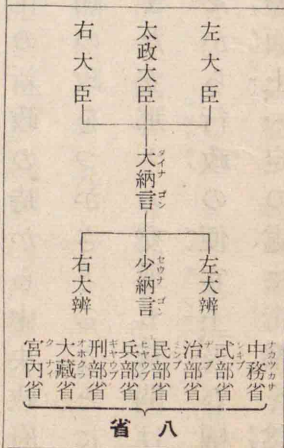 左大臣
太政大臣
右大臣
大納言
ダイナゴン
左大辨
少納言
セウナゴン
右大辨
中務省
ナカツカサ
式部省
シキブ
治部省
ヂブ
民部省
ミンブ
兵部省
ヒヤウブ
刑部省
ギヤウブ
大藏省
オホクラ
宮内省
クナイ
八省